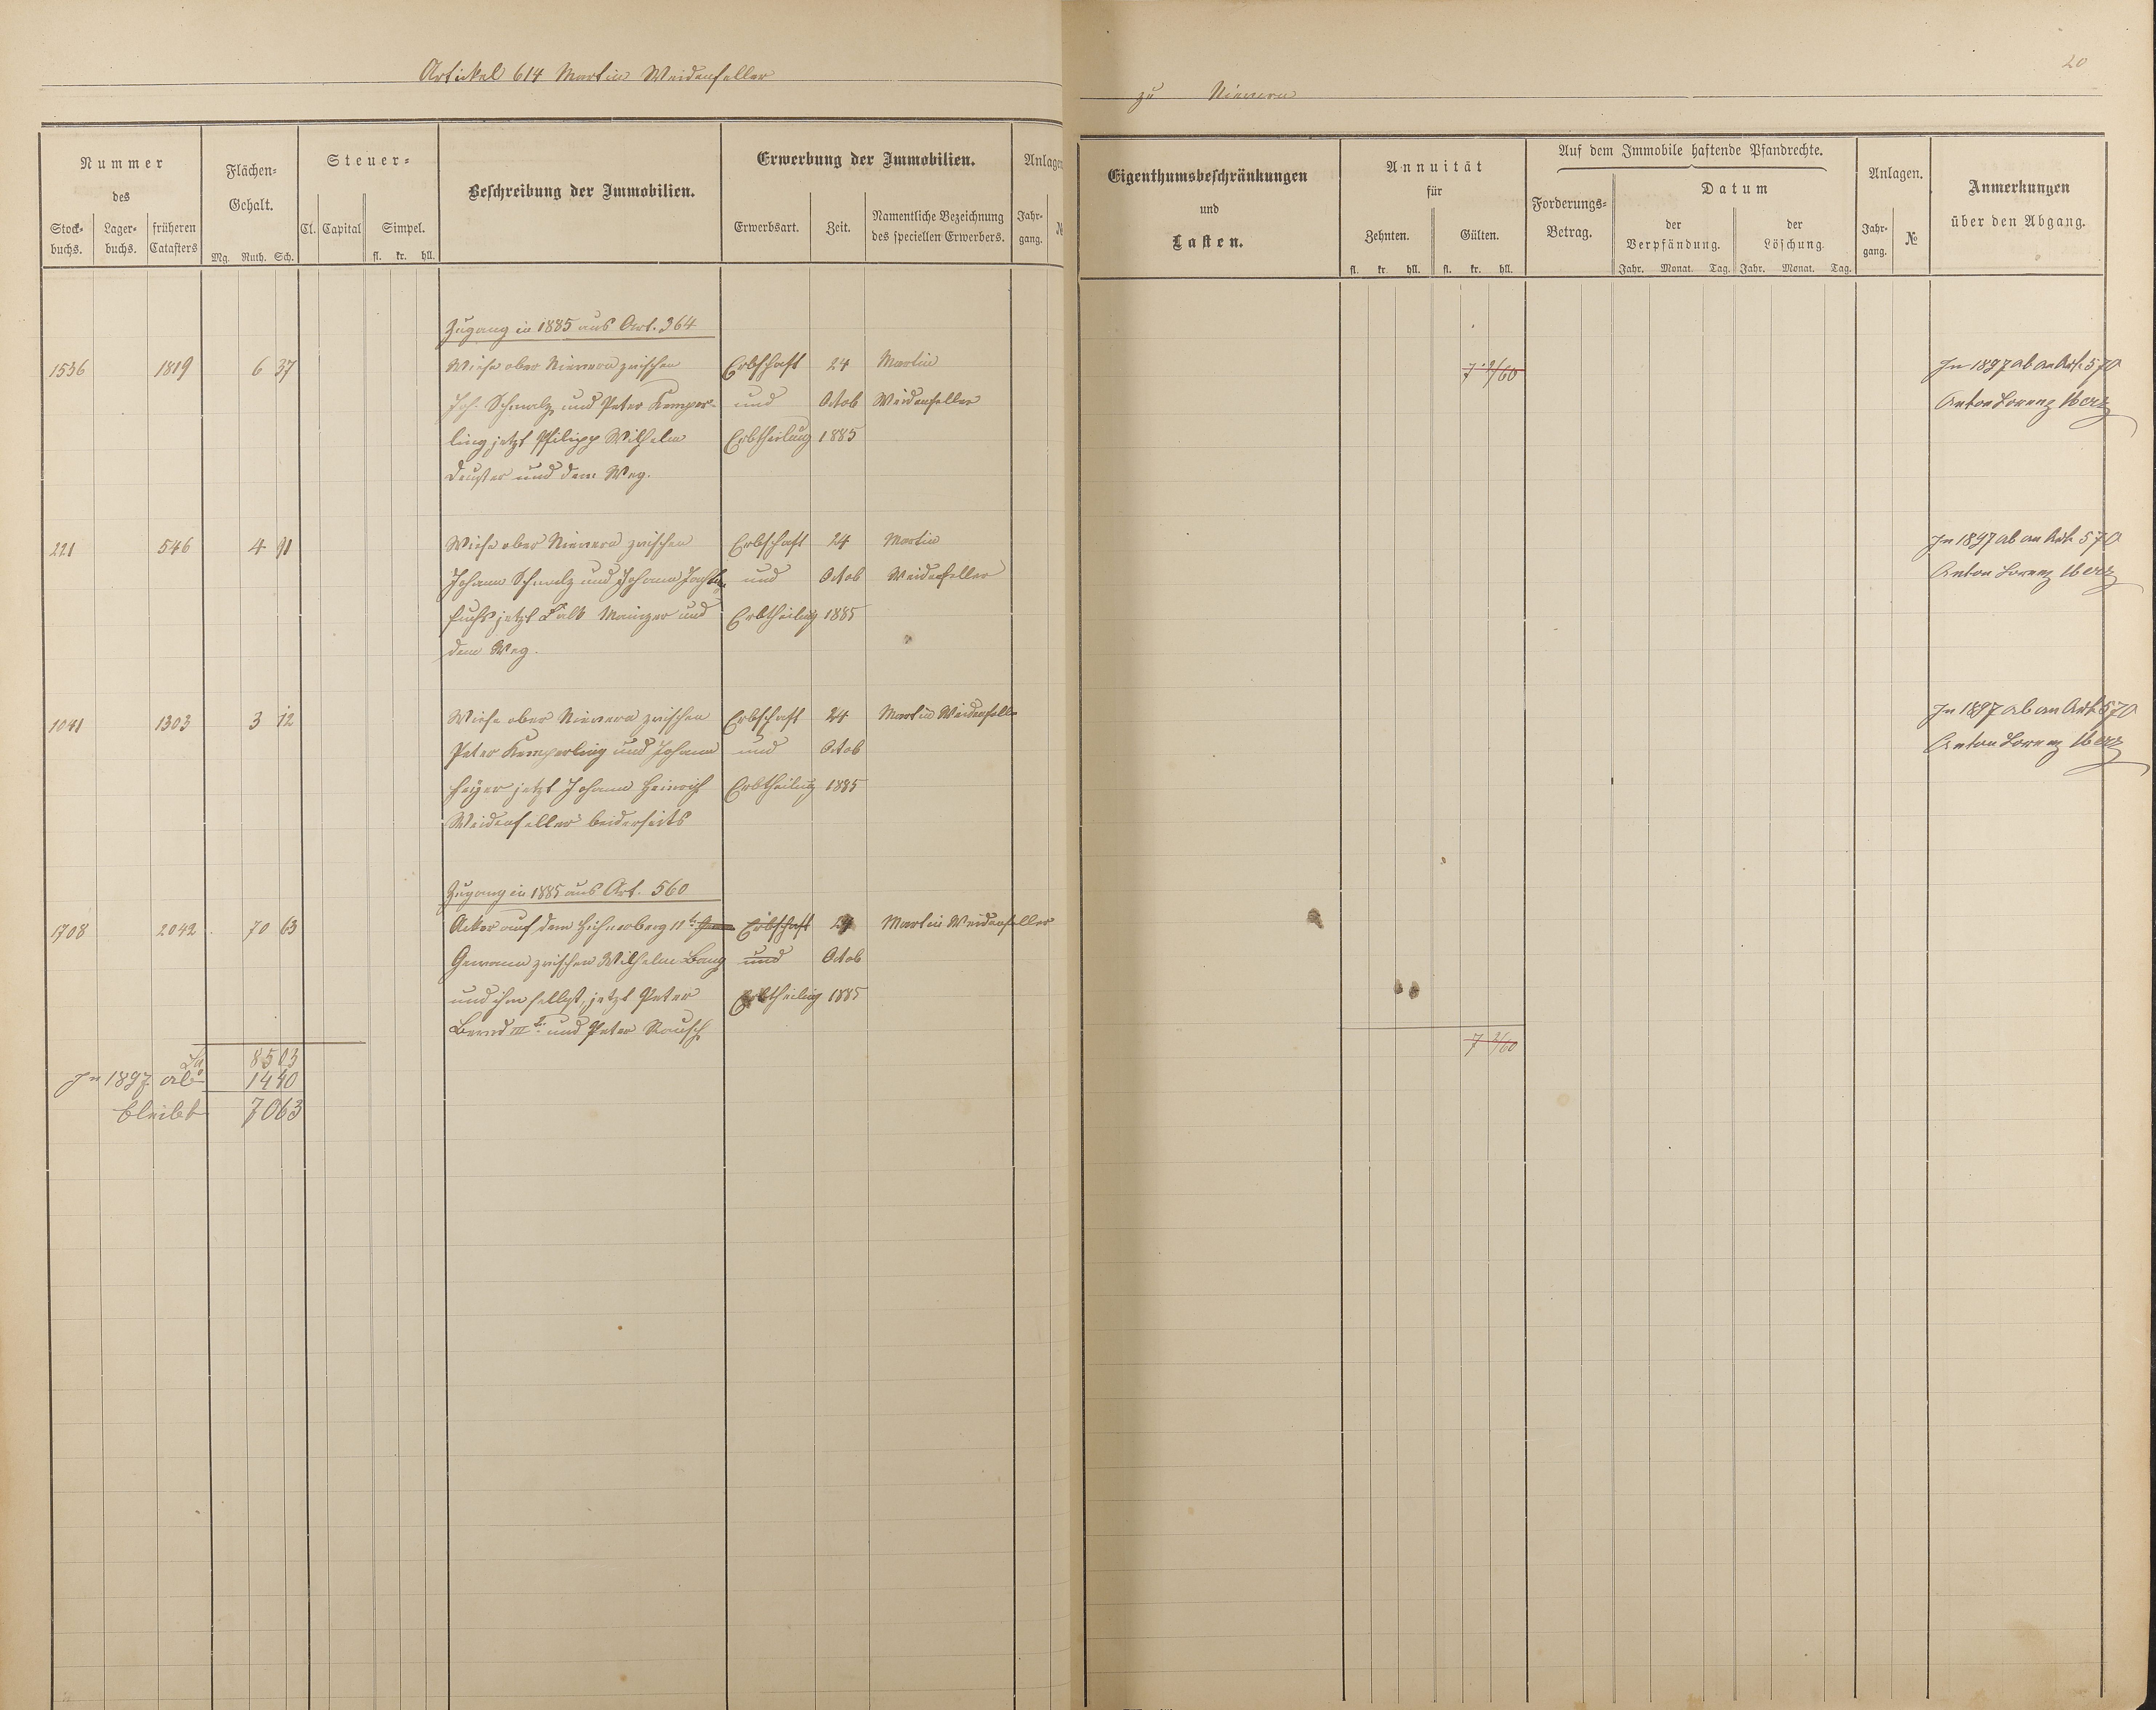 Artikel 614 Martin Weidenfeller
zu Nievern
20
Nummer
des
Stock-
buchs.
Lager-
buchs.
früheren
Catasters
Flächen-
Gehalt.
Mg. Ruth. Sch.
Steuer-
Cl. Capital Simpel.
fl. kr. hll.
Beschreibung der Immobilien.
Erwerbung der Immobilien.
Erwerbsart. Zeit.
Namentliche Bezeichnung
des speciellen Erwerbers.
Anlagen
Jahr-
gang.
Eigenthumsbeschränkungen
und
Lasten.
Annuität
für
Zehnten. Gülten.
fl. kr. hll. fl. kr. hll.
Auf dem Immobile haftende Pfandrechte.
Forderungs-
Betrag.
Datum
der
Verpfändung.
der
Löschung.
Jahr. Monat. Tag. Jahr. Monat. Tag.
Anlagen.
Jahr-
gang.
№
Anmerkungen
über den Abgang.
Zugang in 1885 aus Art. 364
1536 1819 6 37 Wiese ober Nievern zwischen Erbschaft 24 Martin 7 2/60 In 1897 ab an Art. 570
Joh. Schmalz und Peter Kemper- und Octob Weidenfeller Anton Lorenz
ling jetzt Philipp Wilhelm Erbtheilung 1885
Deuster und dem Weg.
221 546 4 91 Wiese ober Nievern zwischen Erbschaft 24 Martin In 1897 ab an Art. 570
Johann Schmalz und Johann und Octob Weidenfeller Anton Lorenz
Fuchs jetzt Mainzer und Erbtheilung 1885
dem Weg.
1041 1303 3 12 Wiese ober Nievern zwischen Erbschaft 24 Martin Weidenfeller In 1897 ab an Art. 570
Peter Kemperling und Johann und Octob Anton Lorenz
jetzt Johann Heinrich Erbtheilung 1885
Weidenfeller beiderseits
Zugang in 1885 aus Art. 560
1708 2042 70 63 Acker auf dem Hühnerberg 11te Erbschaft 24 Martin Weidenfeller
Gewann zwischen Wilhelm und Octob
und ihm selbst, jetzt Peter Erbtheilung 1885
Bernd IIIr und Peter Rausch
Sa 85 03 7 2/60
In 1897 ab 14 40
bleibt 70 63